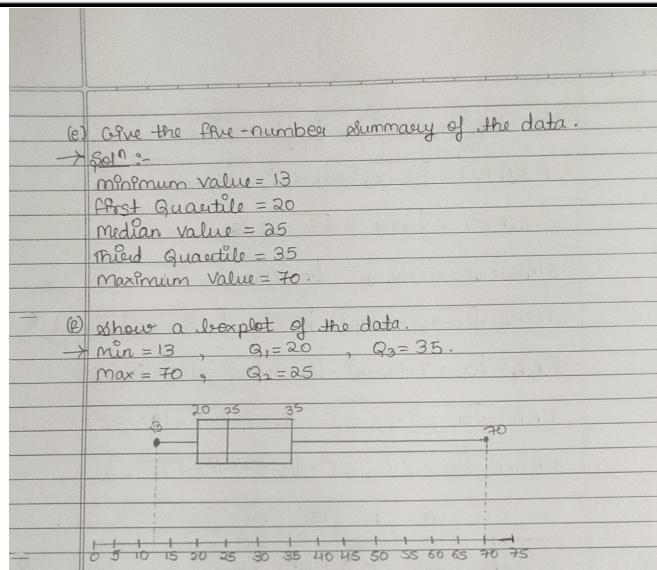 (e) Give the five-number summary of the data.
→ Solⁿ :-
minimum value = 13
first Quartile = 20
median value = 25
Third Quartile = 35
maximum value = 70.
(f) show a boxplot of the data.
→ min = 13 , Q₁ = 20 , Q₃ = 35.
max = 70 , Q₂ = 25
20 25 35
13 70
0 5 10 15 20 25 30 35 40 45 50 55 60 65 70 75